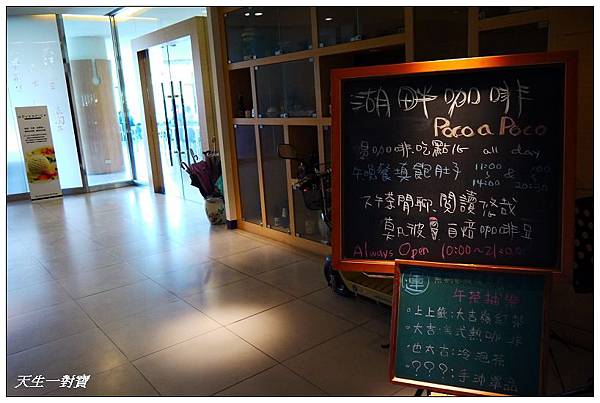 湖畔咖啡
Poco a Poco
喝咖啡.吃點心 all day
午晚餐填飽肚子 11:00 &
14:00 20:00
下午茶閒聊、閱讀悠哉
莫凡彼 自焙咖啡豆
Always Open 10:00~21:00
運
午茶抽樂
上上籤:大吉 紅茶
大吉:美式熱咖啡
也太吉:冷泡茶
???:手沖單品
天生一對寶